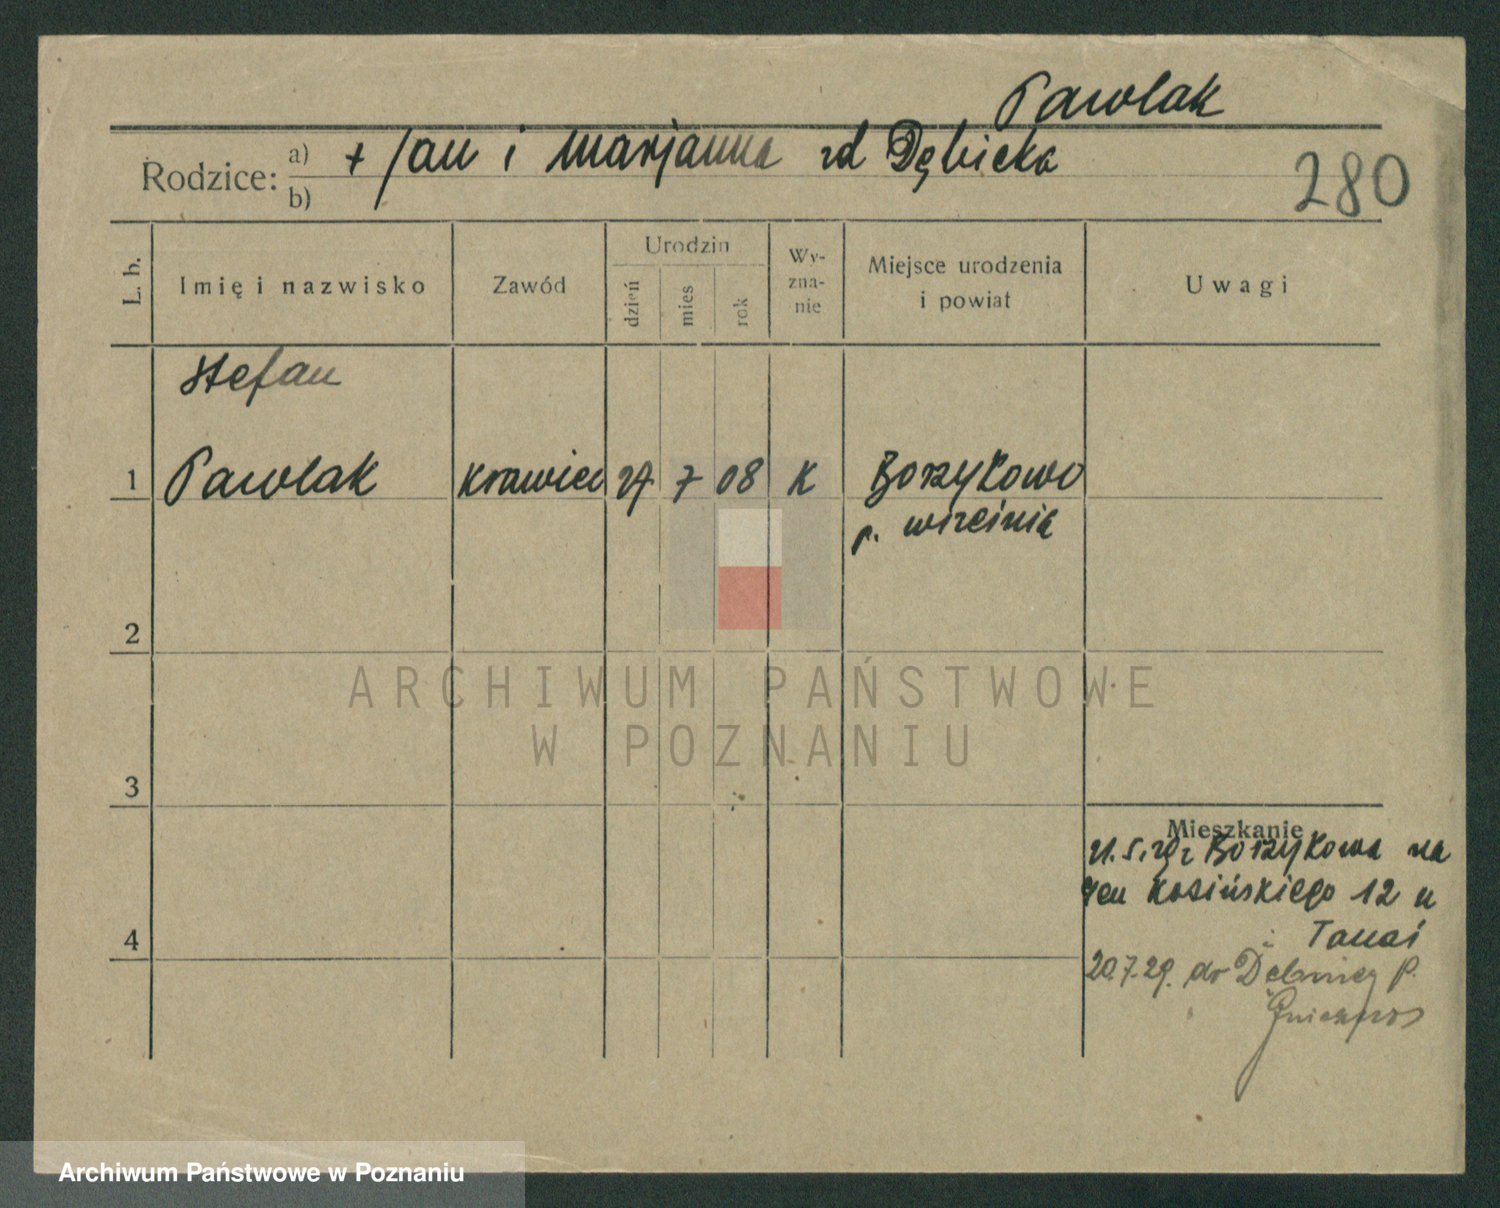 Pawlak
Rodzice: a) + Jan i Marjanna zd Dębicka
b)
280
L. b.
Imię i nazwisko
Zawód
Urodzin
dzień
mies
rok
Wy-
zna-
nie
Miejsce urodzenia
i powiat
Uwagi
Stefan
1 Pawlak krawiec 27 7 08 K Borzykowo
p. wrzeinia
2
ARCHIWUM PAŃSTWOWE
W POZNANIU
3
Mieszkanie
21.5.29 z Borzykowa na
Gen Kosińskiego 12 u
Tanaś
20.7.29. do Dębnicy p.
Archiwum Państwowe w Poznaniu
4